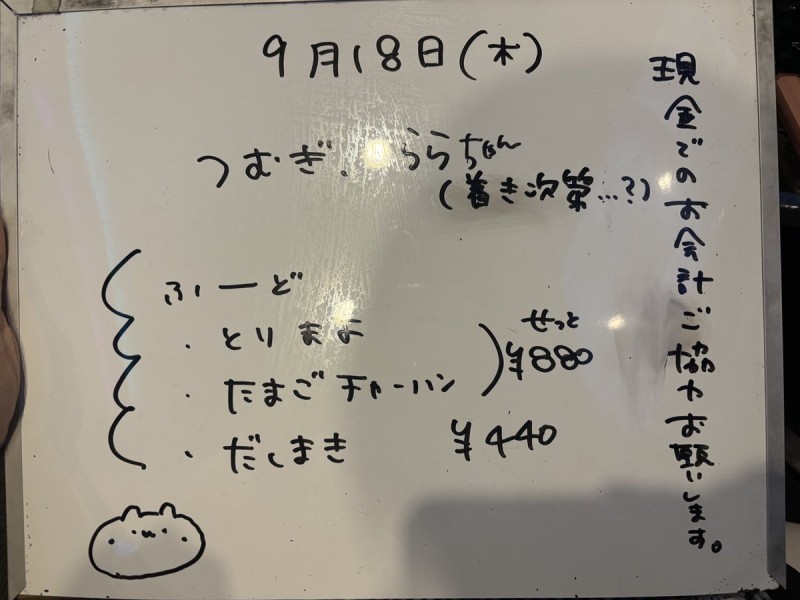 9月18日(木)
つむぎ、ららちゃん
(着き次第…?)
ふーど
・とりまよ
せっと
¥880
・たまごチャーハン
・だしまき ¥440
現金でのお会計ご協力お願いします。